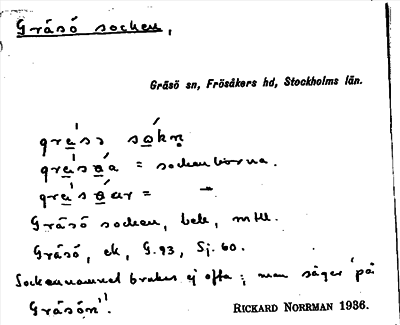 Gräsö socken,
Gräsö sn, Frösåkers hd, Stockholms län.
= sockenborna.
=
Gräsö socken, bebc, mtll.
Gräsö, ek, G.93, Sj. 60.
Sockennamnet brukas ej ofta; man säger "på
Gräsön".
RICKARD NORRMAN 1936.